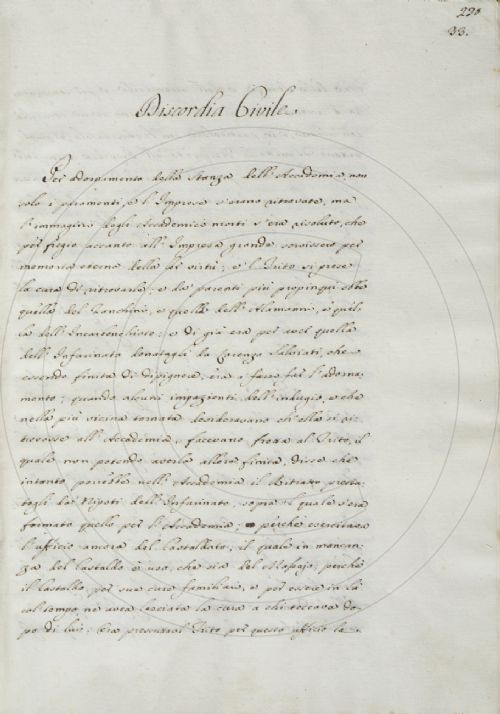 230
33.
Discordia Civile.
Per adornamento della Stanza dell'Accademia, non
solo i paramenti, e l'Imprese s'erano ritrovate, ma
l'immagini degli Accademici morti s'era risoluto, che
per fregio accanto all'Impresa grande servissero per
memoria eterna della lor virtù; e l'Trito si prese
la cura di ritrovarle: e da parenti più propinqui ebbe
quella del Zanchini, e quella dell'Alamanni, e quel-
la dell'Incarbonchiato: e di già era per aver quella
dell'Infarinato donatagli da Lorenzo Salviati, che
essendo finita di dipignere, era a farsi far l'adorna-
mento; quando alcuni impazienti dell'indugio, e che
nella più vicina tornata desideravano ch'ella si ri-
trovasse all'Accademia, facevano frora al Trito, il
quale non potendo averla allora finita, disse che
intanto porrebbe nell'Accademia il Ritratto presta-
togli da' Nipoti dell'Infarinato, sopra il quale s'era
formato quello per l'Accademia; perchè esercitava
l'ufficio ancora del Castaldato; il quale in mancan-
za del Castaldo è uso, che sia del Massajo; perchè
il Castaldo, per sue cure famigliari, e per essere in là
col tempo ne avea lasciata la cura a chi toccava do-
po di lui: Era presura al Trito per questo ufficio la